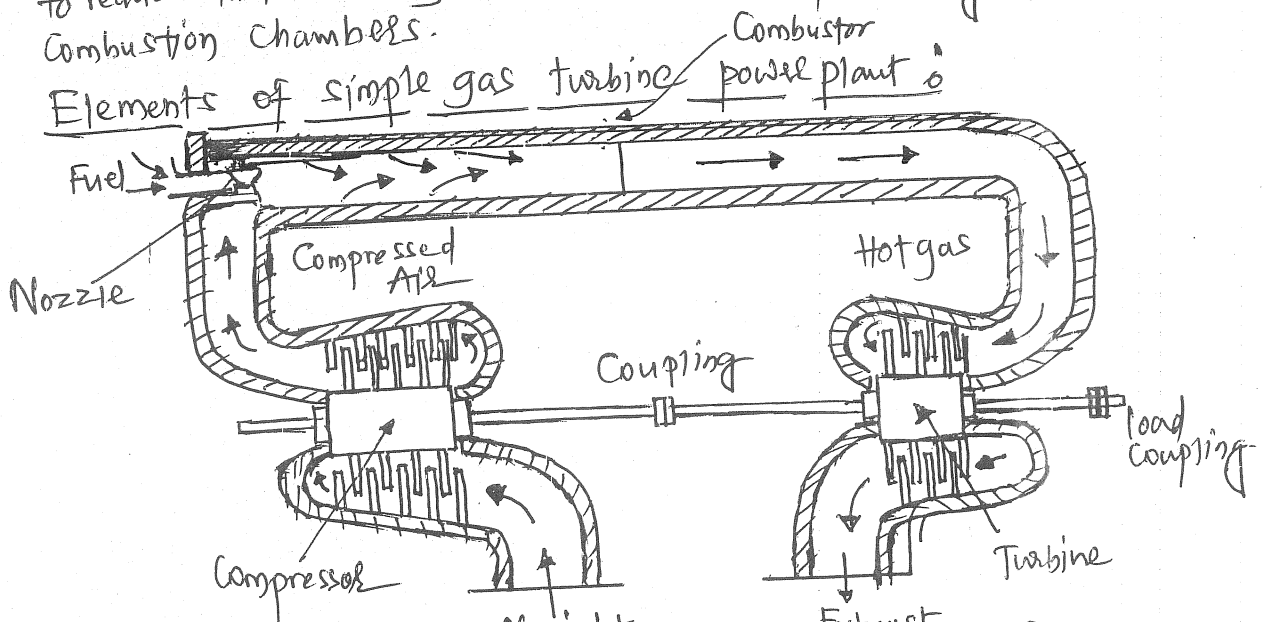 Combustion chambers.
Combustor
Elements of simple gas turbine power plant :
Fuel
Compressed
Air
Hot gas
Nozzle
Coupling
load
Coupling
Compressor
Turbine
Exhaust